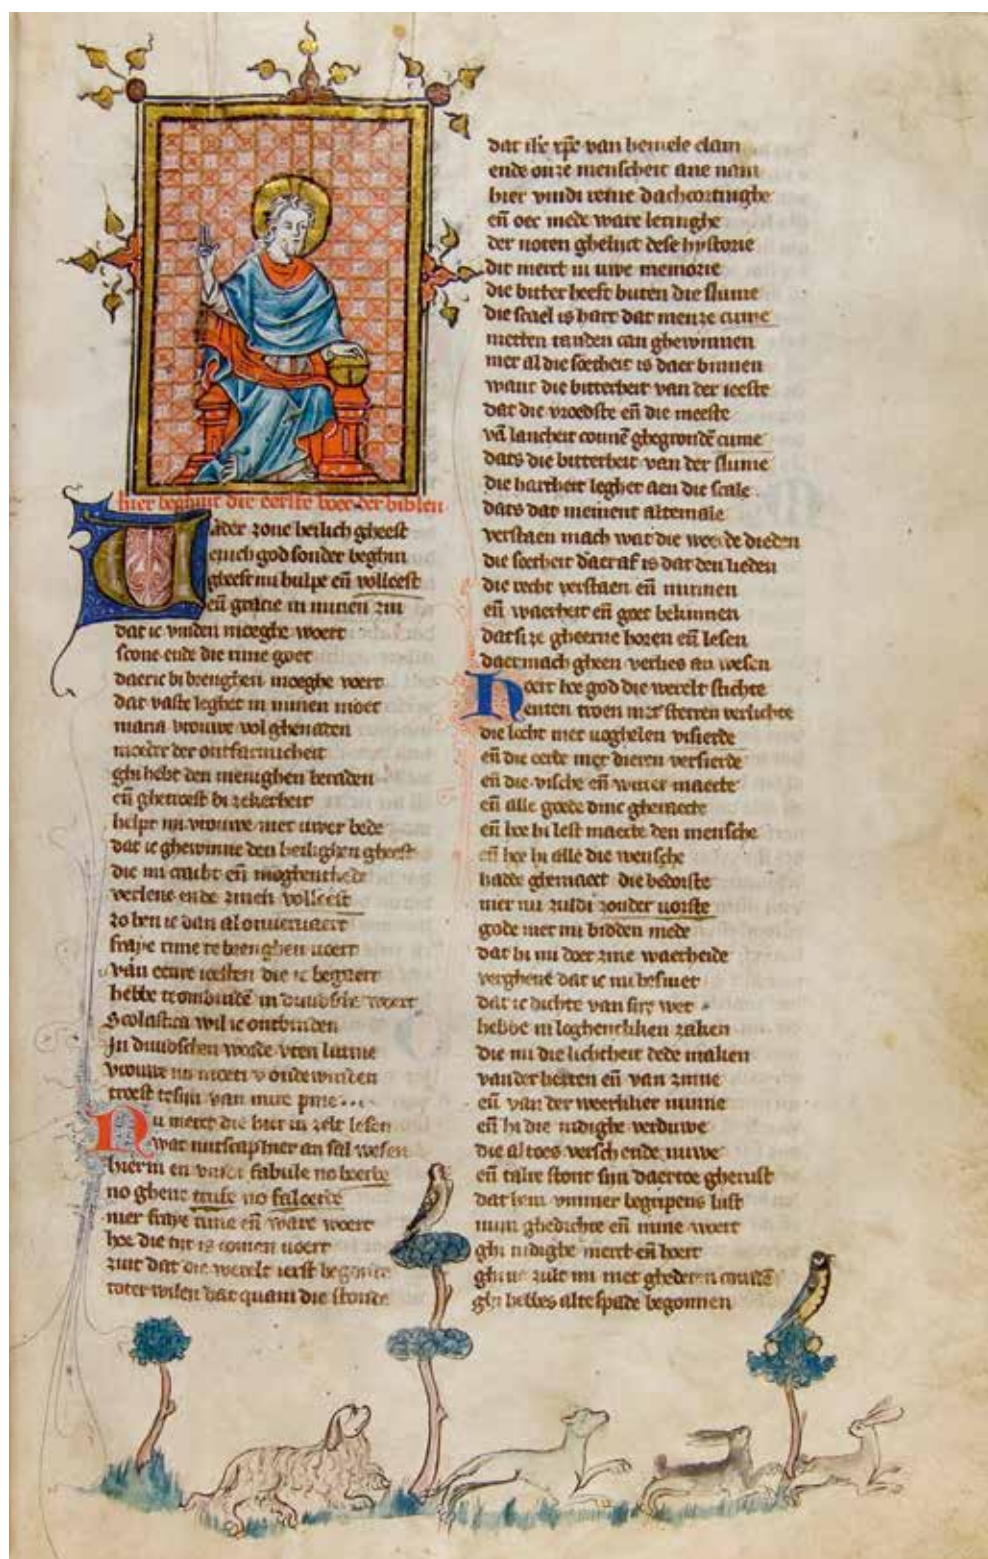 hier beghint die eerste boec der biblen
Vader zone heilich gheest
enich god sonder beghin
gheeft mi hulpe eñ volleest
eñ gracie in minen zin
dat ic vinden moeghe woert
scone ende die rime goet
daeric bi brenghen moeghe voert
dat vaste leghet in minen moet
maria vrouwe vol ghenaden
moeder der ontfarmicheit
ghi hebt den menighen beraden
eñ ghetroest bi zekerheit
helpt mi vrouwe met uwer bede
dat ic ghewinne den heilighen gheest
die mi cracht eñ moghenthede
verlene ende zinen volleest
zo ben ic dan al onvervaert
fraye rime te brenghen voert
van eenre ieesten die ic begaert
hebbe tombindē in duudsche woert
Scolastica wil ic ontbinden
In duudschen worde uten latine
vrouwe nu moeti v onderwinden
troest tesijn van mire pine...
Nu merct die hier in zelt lesen
wat nutscap hier an sal wesen
hier in en vint fabule no boerde
no ghene trufe no faloerde
mer fraye rime eñ ware woert
hoe die tijt is comen voert
zint dat die werelt ierst began
toter wilen dat quam die stonde
dat ihc xpc van hemele clam
ende onze menscheit ane nam
hier vindi reine dachcortinghe
eñ oec mede ware leringhe
der noten ghelict dese hystorie
dit merct in uwe memorie
die bitter heeft buten die slume
die scael is hart dat menze cume
metten tanden can ghewinnen
mer al die soetheit is daer binnen
want die bitterheit van der ieeste
dat die vroedste eñ die meeste
vā lancheit connē ghegrondē cume
dats die bitterheit van der slume
die hartheit leghet aen die scale
dats dat niement altemale
verstaen mach wat die woerde dieden
die soetheit daeraf is dat den lieden
die recht verstaen eñ minnen
eñ waerheit eñ goet bekinnen
dat si ze gheerne horen eñ lesen
daer mach gheen verlies an wesen
Hoert hoe god die werelt stichte
enten troen met sterren verlichte
die locht met voghelen visierde
eñ die eerde met dieren versierde
eñ die vische eñ water maecte
eñ alle goede dinc gheraecte
eñ hoe hi lest maecte den mensche
eñ hoe hi alle die wensche
hadde ghemaect die bedorste
mer nu zuldi zonder vorste
gode met mi bidden mede
dat hi mi doer zine waerheide
vergheue dat ic mi besmet
dat ic dichte van sire wet
hebbe in loghenliken zaken
die mi die lichtheit dede maken
van der herten eñ van zinne
eñ van der weerliker minne
eñ hi die nidighe verduwe
die altoes versch ende nuwe
eñ talre stont sijn daertoe gherust
dat hem ummer begripens lust
mijn ghedichte eñ mine woert
ghi nidighe merct eñ hoert
ghi ne zult mi met ghederen
ghi hebbes alte spade begonnen